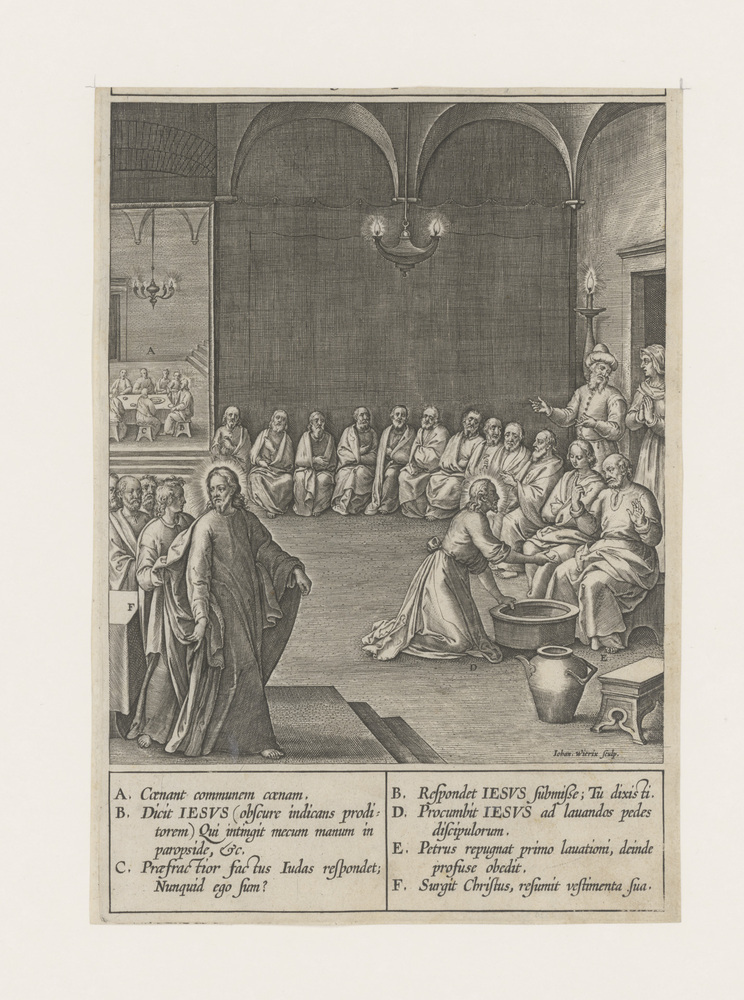 A
C B
F
D
E
Iohan. Wierix sculp.
A. Cœnant communem cœnam.
B. Dicit IESVS (obſcure indicans prodi-
torem) Qui intingit mecum manum in
paropside, &c.
C. Præfractior factus Iudas reſpondet;
Nunquid ego ſum?
B. Reſpondet IESVS ſubmiſse; Tu dixisti.
D. Procumbit IESVS ad lauandos pedes
diſcipulorum.
E. Petrus repugnat primo lauationi, deinde
profuse obedit.
F. Surgit Chriſtus, reſumit veſtimenta ſua.